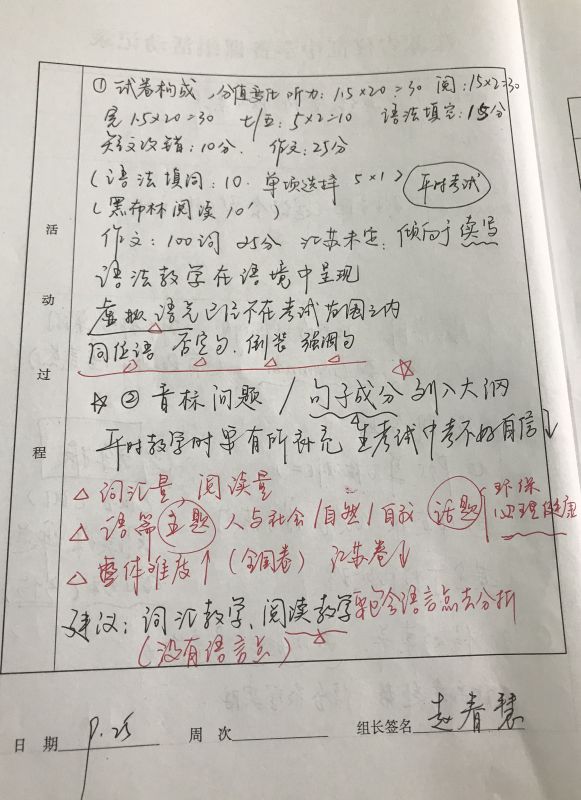 ① 试卷构成,分值变化 听力:1.5×20=30 阅:15×2=30
完 1.5×20=30 七/五:5×2=10 语法填空:15分
短文改错:10分. 作文:25分
(语法填词:10. 单项选择 5×1) 平时考试
(黑布林阅读 10')
作文:100词 25分 江苏未定,倾向于读写
语法教学在语境中呈现
虚拟语气已经不在考试范围之内
同位语 否定句.倒装 强调句
☆ ② 音标问题 / 句子成分 列入大纲
平时教学时要有所补充 生考试中考不好自信↓
△ 词汇量,阅读量
△ 语篇 主题 人与社会/自然/自我 话题 环保 心理健康
△ 整体难度↑(全国卷) 江苏卷↓
建议:词汇教学、阅读教学 包含语言点去分析
(没有语言点)
活动过程
日 期 9.25 周 次 组长签名 赵春慧